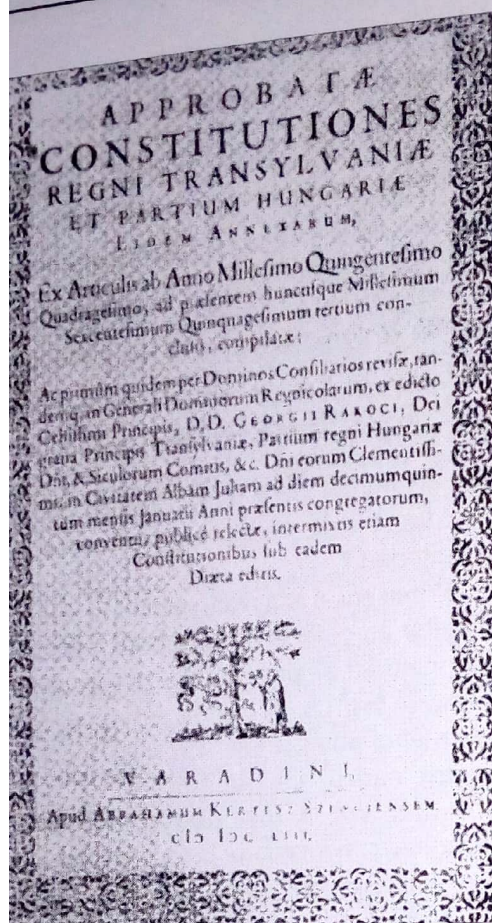 APPROBATÆ
CONSTITUTIONES
REGNI TRANSYLVANIÆ
ET PARTIUM HUNGARIÆ
EIDEM ANNEXARUM,
Ex Articulis ab Anno Millesimo Quingentesimo
Quadragesimo, ad præsentem huncusque Millesimum
Sexcentesimum Quinquagesimum tertium con-
clusis, compilatæ:
Ac primùm quidem per Dominos Consiliarios revisæ, tan-
demq; in Generali Dominorum Regnicolarum, ex edicto
Celsissimi Principis, D.D. GEORGII RAKOCI, Dei
gratia Principis Transylvaniæ, Partium regni Hungariæ
Dñi, & Siculorum Comitis, &c. Dñi eorum Clementissi-
mi, in Civitatem Albam Juliam ad diem decimumquin-
tum mensis Januarii Anni præsentis congregatorum,
conventu, publicè relectæ, intermixtis etiam
Constitutionibus sub eadem
Diæta editis.
VARADINI,
Apud ABRAHAMUM KERTESZ SZENCIENSEM.
CIƆ IƆC LIII.